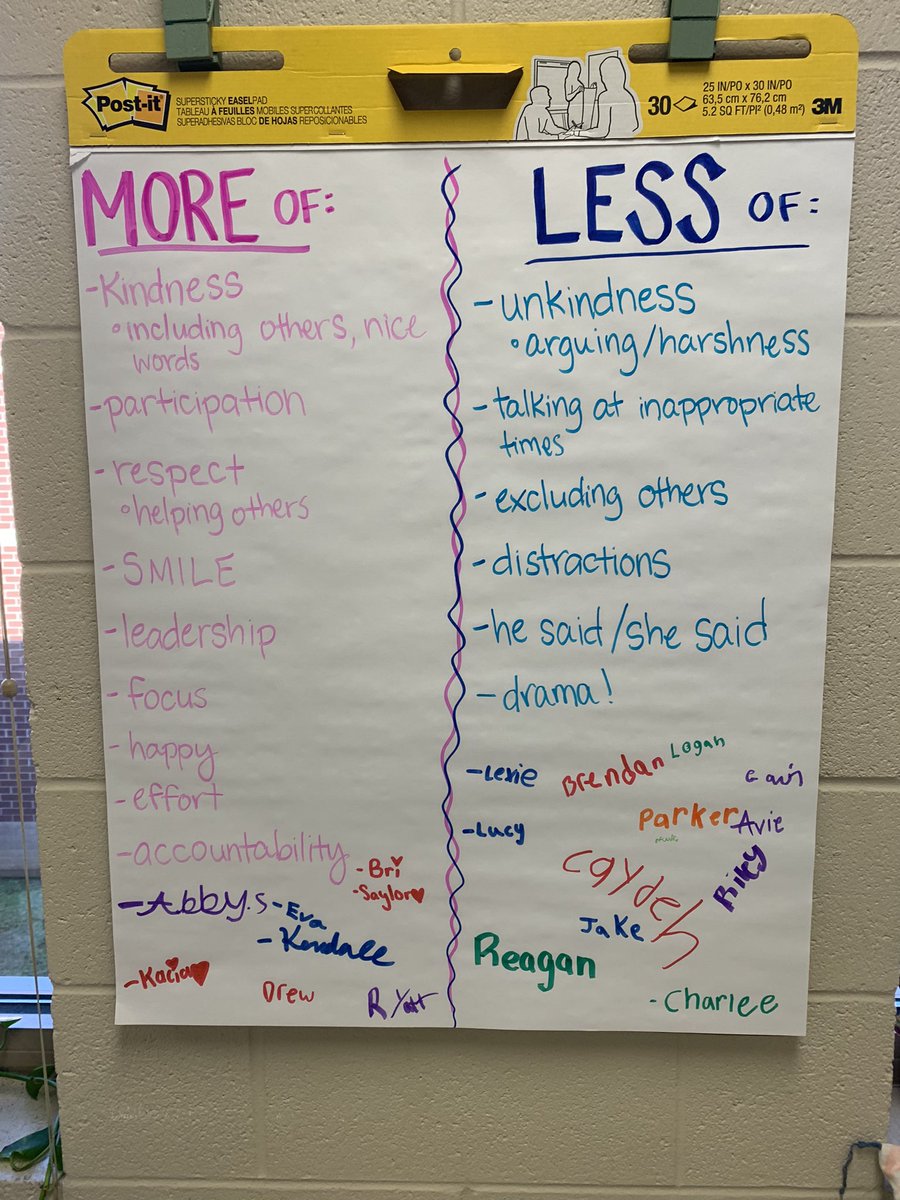 Post-it
SUPERSTICKY EASEL PAD
TABLEAU À FEUILLES MOBILES SUPERCOLLANTES
SUPERADHESIVAS BLOC DE HOJAS REPOSICIONABLES
30
25 IN/PO x 30 IN/PO
63,5 cm x 76,2 cm
5.2 SQ FT/PI² (0,48 m²)
3M
MORE OF:
-Kindness
including others, nice
words
-participation
-respect
helping others
-SMILE
-leadership
-focus
-happy
-effort
-accountability
-Bri
-Saylor
-Abby.S
-Eva
-Kendall
-Kacia
Drew
LESS OF:
-unkindness
arguing/harshness
-talking at inappropriate
times
-excluding others
-distractions
-he said/she said
-drama!
-Lexie
Brendan
Logan
-Lucy
Parker
-Avie
Cayden
Riley
Jake
Reagan
-Charlee